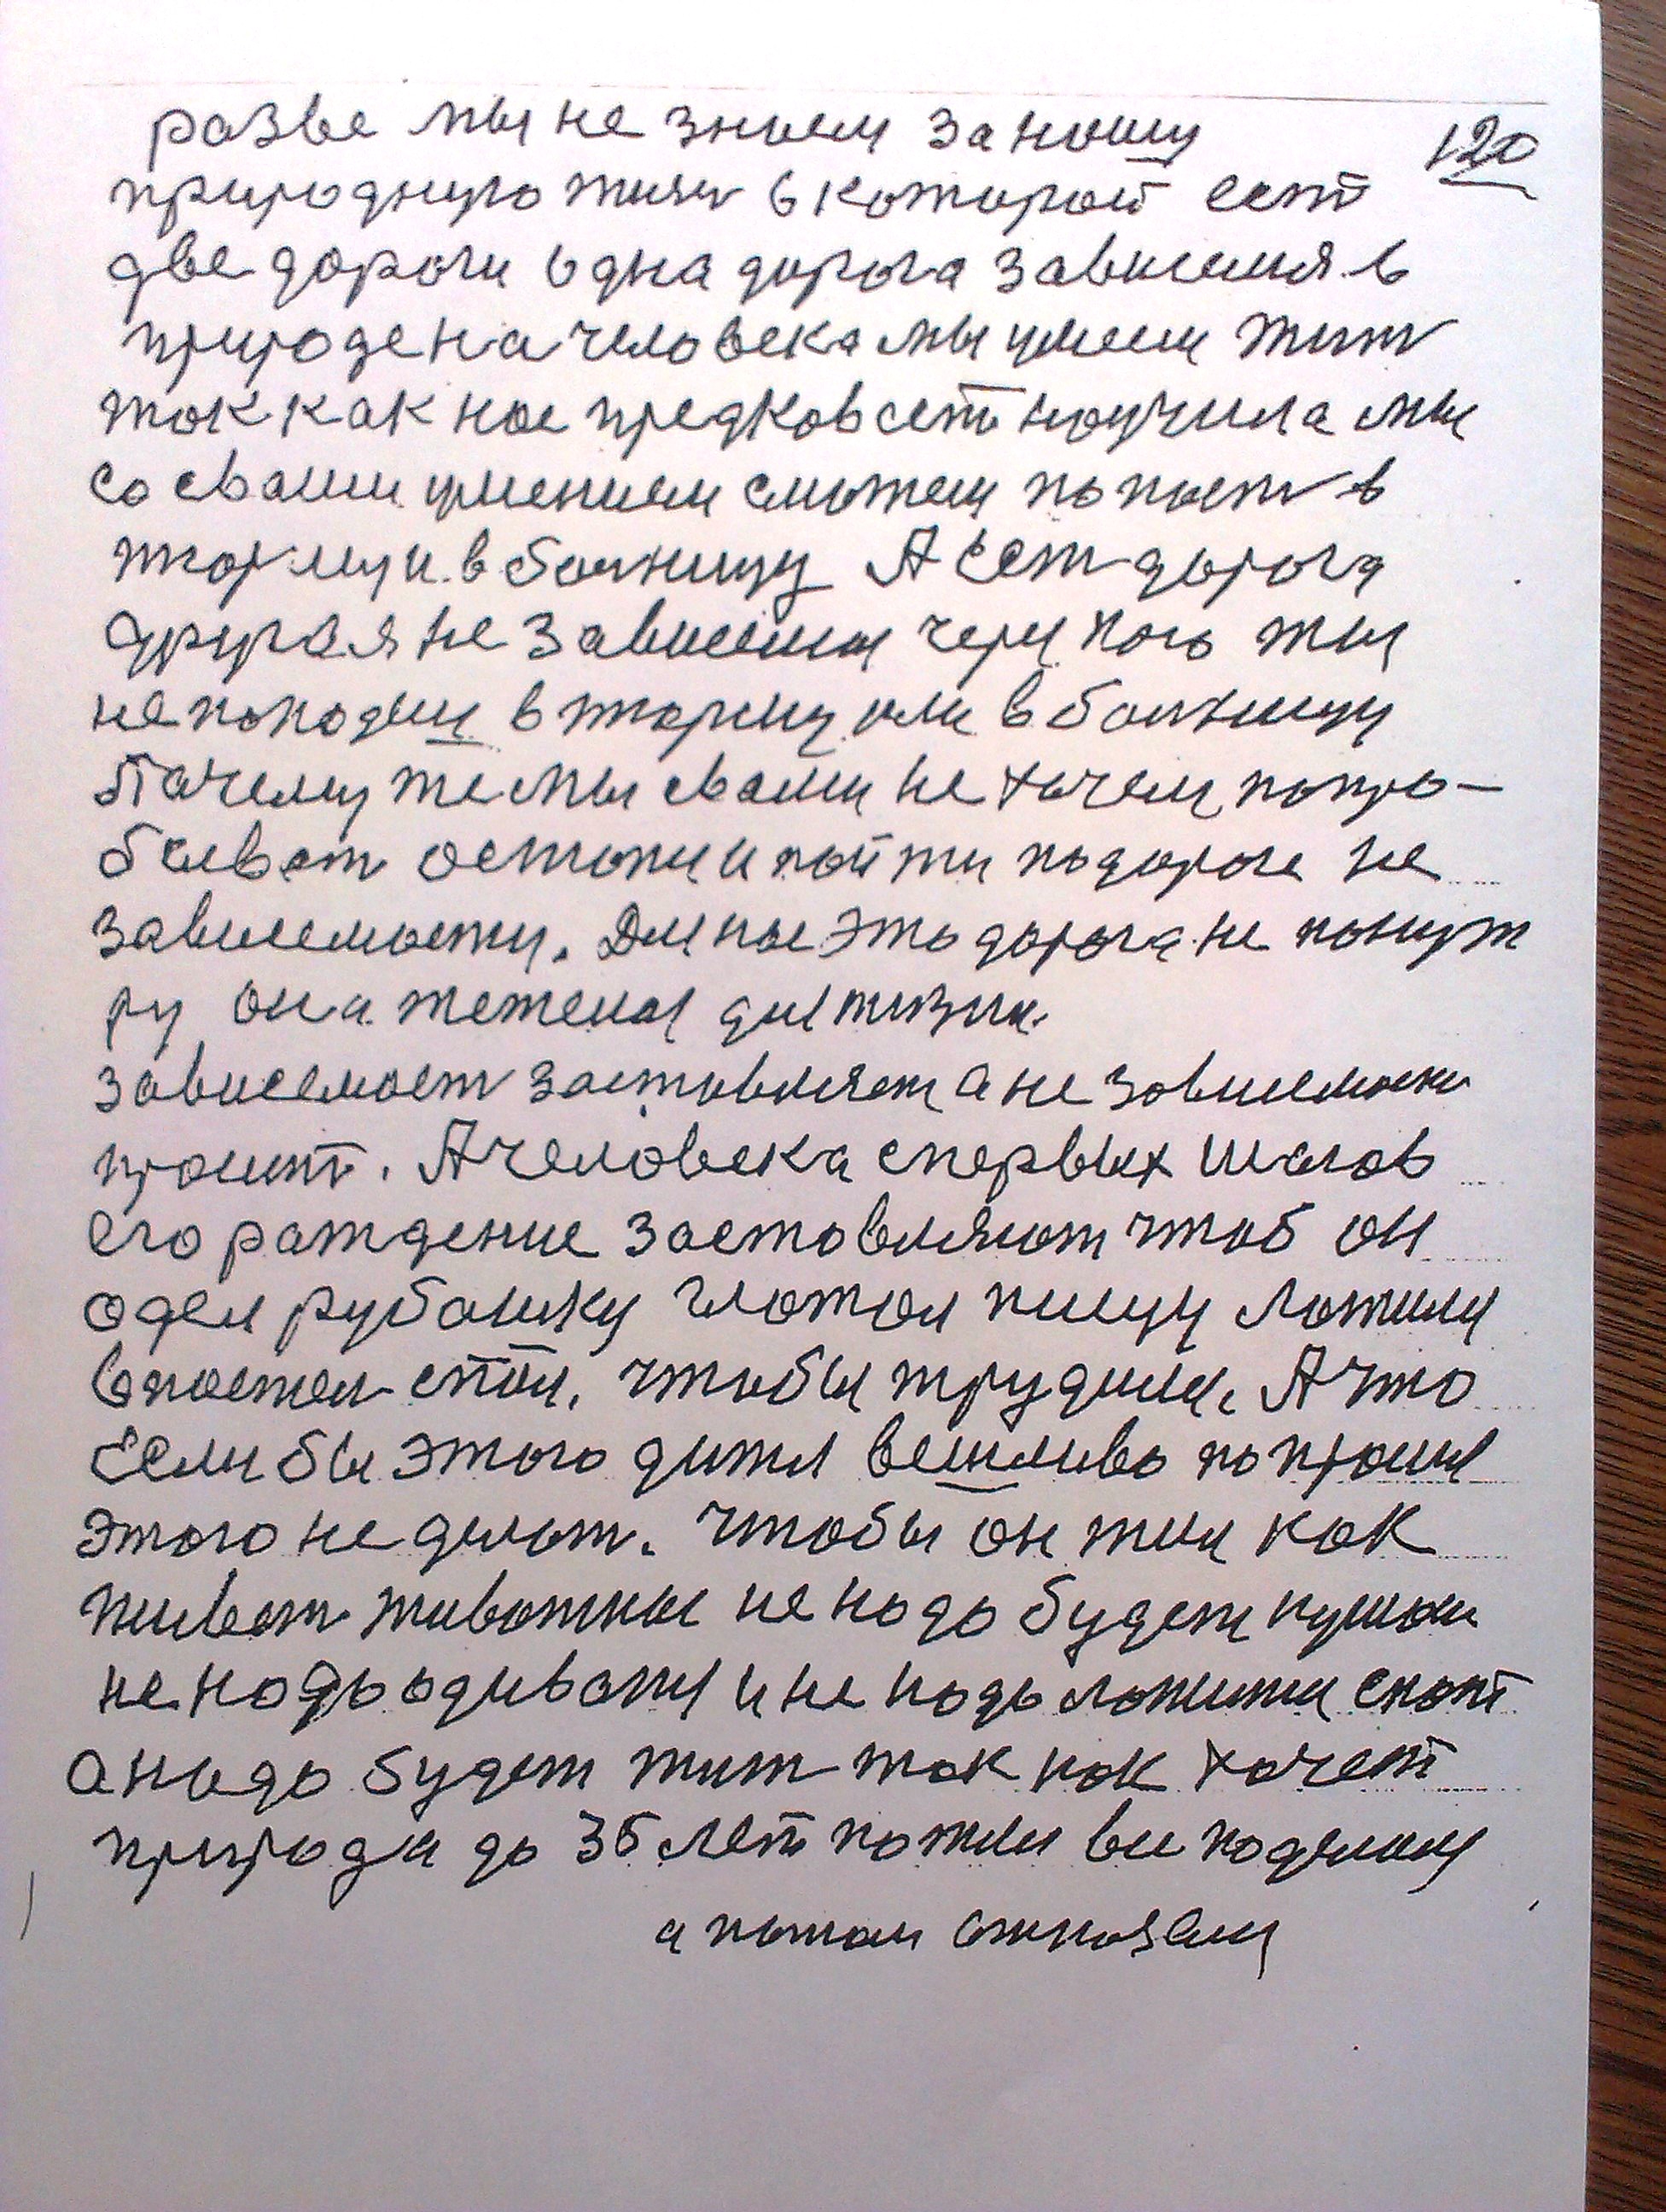 разве мы не знаем за нашу
120
природную жизн в которой ест
две дороги одна дорога зависемая в
природе на человека мы умеем жит
так как нас предков сет научила мы
со сваим умением сможем попаст в
тюрму и в болницу А ест дорога
другая не зависемая через кого мы
не попадем в тюрму или в болницу
Пачему же мы сваим не хачем папро-
бават остапи и пайти по дороге не
зависемасти. Для нас это дорога не
она для жизни.
зависемаст заставляет а не зависемаст
просит. А человека с первых шагов
его раждение заставляют чтоб он
одел рубашку глотал пищу ложился
в постел спал, чтобы трудился. А что
Если бы этого дитя вешливо попросил
этого не делат. чтобы он жил как
живет животные не надо будет кушат
не надо одиватся и не надо ложится спат
а надо будет жит так как хочет
природа до 35 лет пожил все поделаем
а потом отпозем